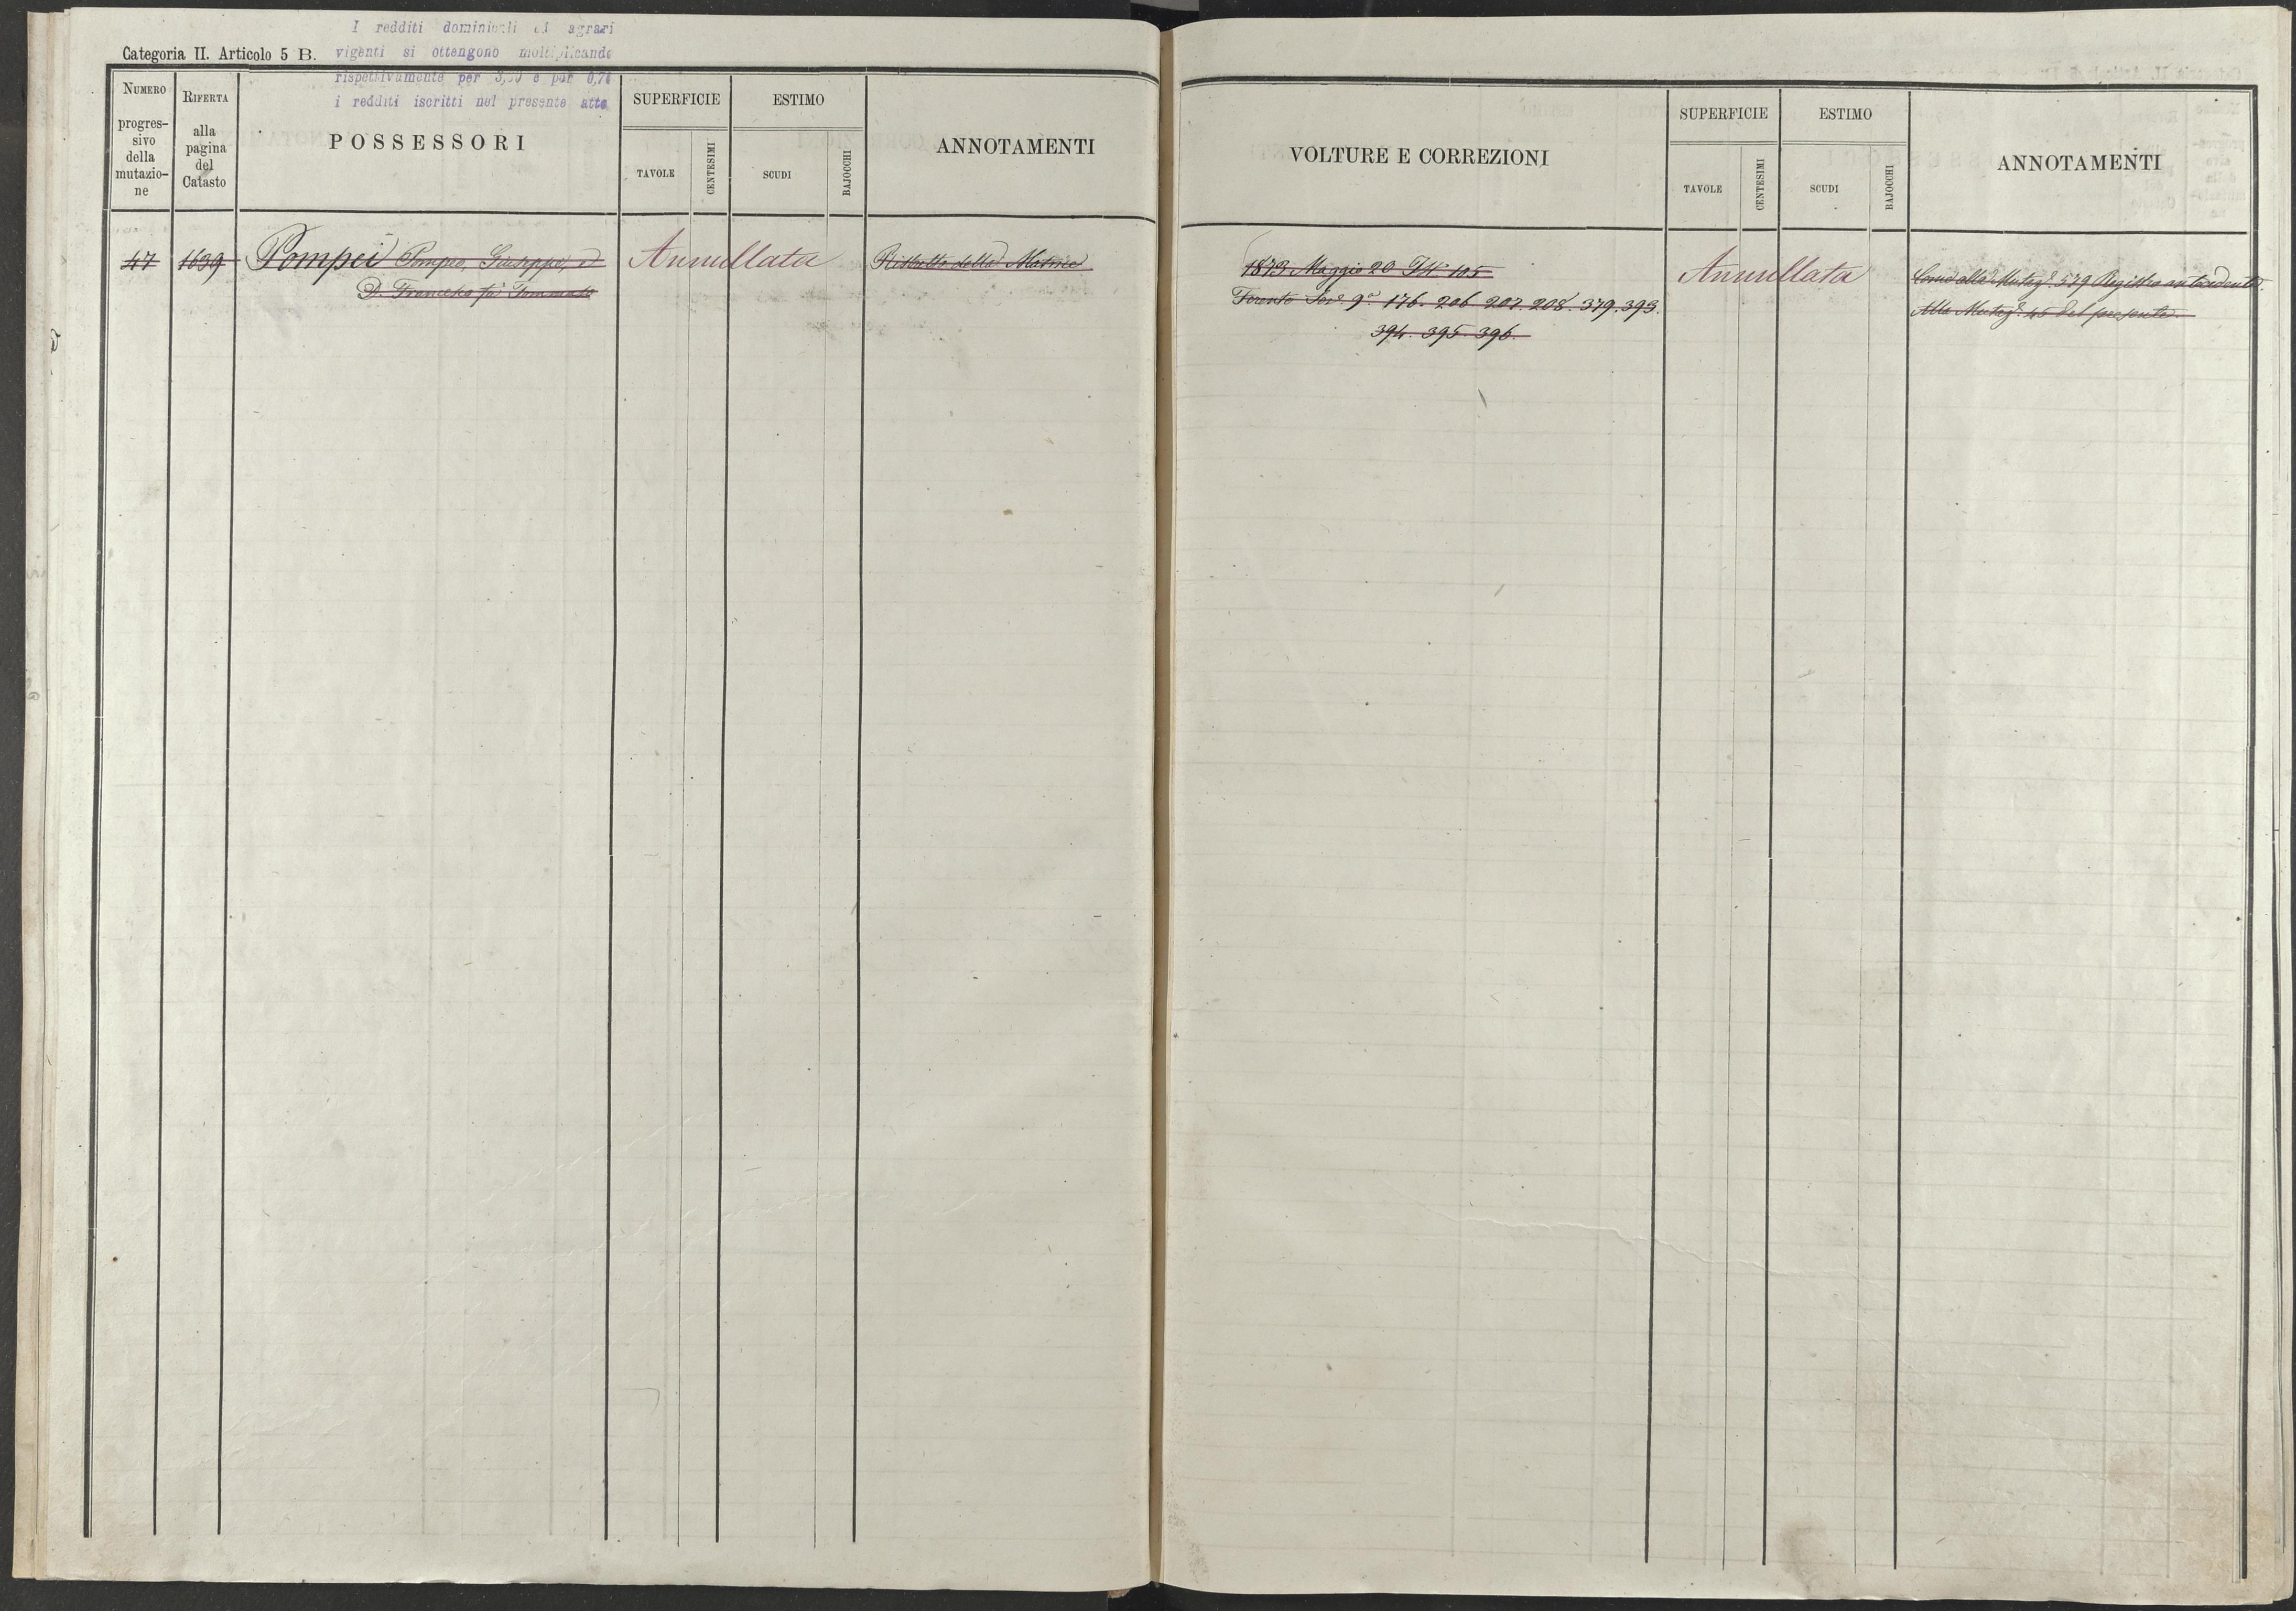 I redditi dominicali ed agrari
Categoria II. Articolo 5 B.
vigenti si ottengono moltiplicando
rispettivamente per 3,50 e per 0,70
i redditi iscritti nel presente atto
NUMERO
progres-
sivo
della
mutazio-
ne
RIFERTA
alla
pagina
del
Catasto
POSSESSORI
SUPERFICIE
TAVOLE
CENTESIMI
ESTIMO
SCUDI
BAJOCCHI
ANNOTAMENTI
47
1639
Pompei Pompeo, Giuseppe, e
D. Francesco fu Tommaso
Annullata
della Matrice
VOLTURE E CORREZIONI
SUPERFICIE
TAVOLE
CENTESIMI
ESTIMO
SCUDI
BAJOCCHI
ANNOTAMENTI
1873 Maggio 20 105
9.a 176. 206. 207. 208. 379. 393.
394. 395. 396.
Annullata
Come alla Mutaz.e 579 Registro antecedente.
Alla Mutaz.e 45 del presente.